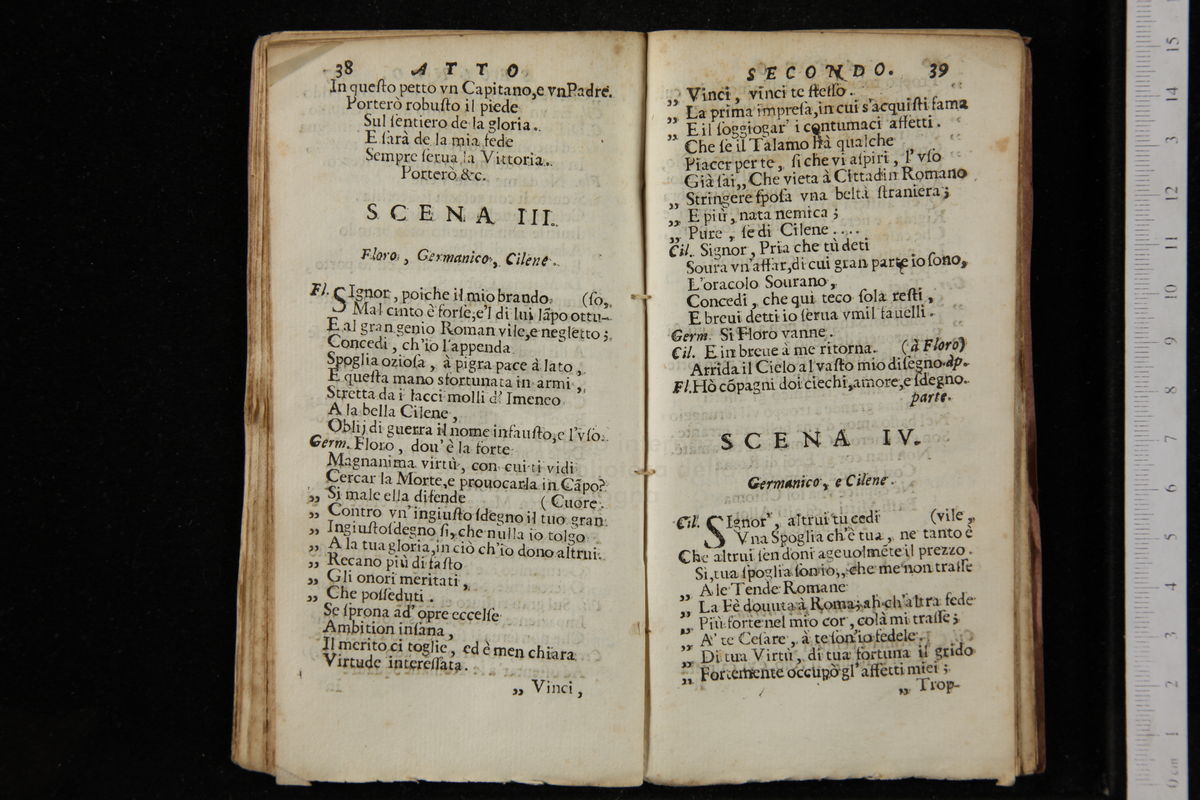 38 ATTO
In questo petto vn Capitano, e vn Padre.
Porterò robusto il piede
Sul sentiero de la gloria.
E sarà de la mia fede
Sempre serua la Vittoria.
Porterò &c.
SCENA III.
Floro, Germanico, Cilene.
Fl. SIgnor, poiche il mio brando (so,
Mal cinto è forse, e'l di lui lãpo ottu-
E al gran genio Roman vile, e negletto;
Concedi, ch'io l'appenda
Spoglia oziosa, à pigra pace à lato,
E questa mano sfortunata in armi,
Stretta da i lacci molli d' Imeneo
A la bella Cilene,
Oblij di guerra il nome infausto, e l'vso.
Germ. Floro, dou' è la forte
Magnanima virtù, con cui ti vidi
Cercar la Morte, e prouocarla in Cãpo?
„ Si male ella difende (Cuore.
„ Contro vn' ingiusto sdegno il tuo gran
„ Ingiusto sdegno sì, che nulla io tolgo
„ A la tua gloria, in ciò ch'io dono altrui.
„ Recano più di fasto
„ Gli onori meritati,
„ Che posseduti.
Se sprona ad' opre eccelse
Ambition insana,
Il merito ci toglie, ed è men chiara
Virtude interessata.
„ Vinci,
SECONDO. 39
„ Vinci, vinci te stesso.
„ La prima impresa, in cui s'acquisti fama
„ E il soggiogar' i contumaci affetti.
Che se il Talamo hà qualche
Piacer per te, si che vi aspiri, l'vso
Già sai, „ Che vieta à Cittadin Romano
„ Stringere sposa vna beltà straniera;
„ E più, nata nemica;
„ Pure, se di Cilene ....
Cil. Signor, Pria che tù deti
Soura vn'affar, di cui gran parte io sono,
L'oracolo Sourano,
Concedi, che qui teco sola resti,
E breui detti io serua vmil fauelli.
Germ. Si Floro vanne.
Cil. E in breue à me ritorna. (à Floro)
Arrida il Cielo al vasto mio disegno. ap.
Fl. Hò cõpagni doi ciechi, amore, e sdegno.
parte.
SCENA IV.
Germanico, e Cilene.
Cil. SIgnor', altrui tu cedi (vile,
Vna Spoglia ch'è tua, ne tanto è
Che altrui sen doni ageuolmẽte il prezzo.
Si, tua spoglia son io, „ che me non trasse
„ A le Tende Romane
„ La Fè douuta à Roma; ah ch'altra fede
„ Più forte nel mio cor, colà mi trasse;
„ A' te Cesare, à te son'io fedele.
„ Di tua Virtù, di tua fortuna il grido
„ Fortemente occupò gl' affetti miei;
„ Trop-